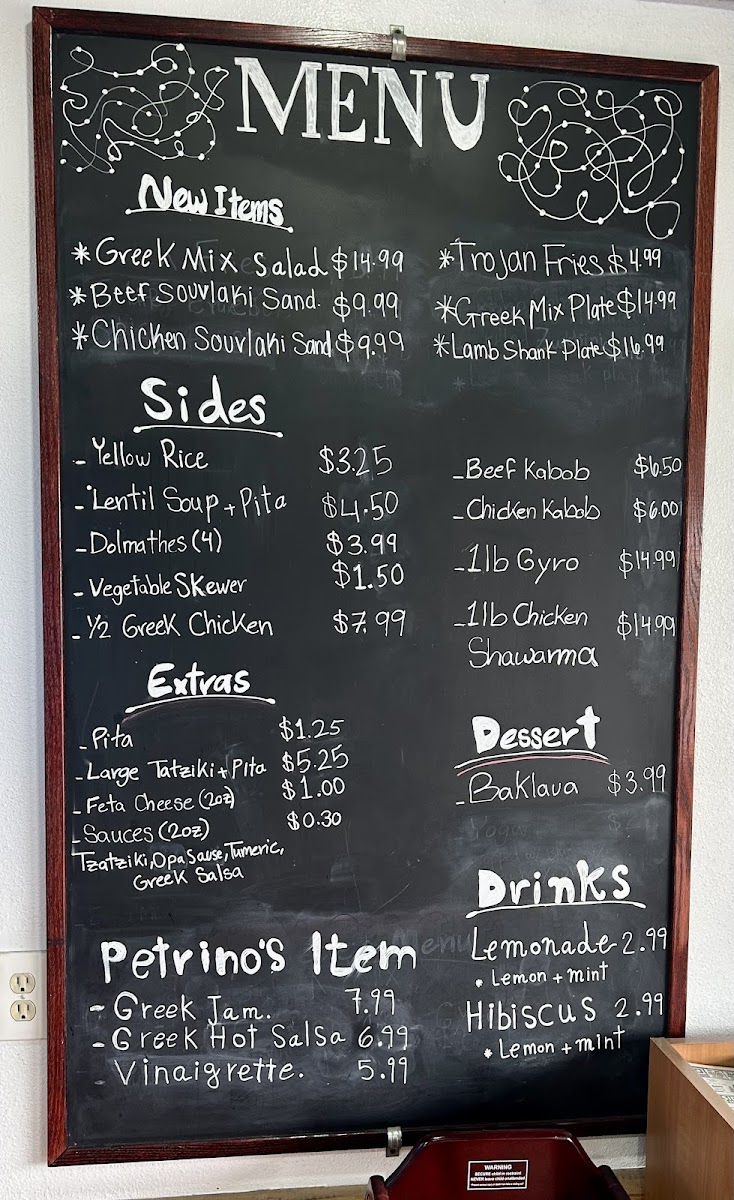 MENU
New Items
*Greek Mix Salad $14.99
*Beef Souvlaki Sand. $9.99
*Chicken Souvlaki Sand $9.99
*Trojan Fries $4.99
*Greek Mix Plate $14.99
*Lamb Shank Plate $16.99
Sides
- Yellow Rice $3.25
- Lentil Soup + Pita $4.50
- Dolmathes (4) $3.99
- Vegetable Skewer $1.50
- 1/2 Greek Chicken $7.99
- Beef Kabob $6.50
- Chicken Kabob $6.00
- 1lb Gyro $14.99
- 1lb Chicken $14.99
Shawarma
Extras
- Pita $1.25
- Large Tatziki + Pita $5.25
- Feta Cheese (2oz) $1.00
- Sauces (2oz) $0.30
Tzatziki, Opa Sause, Tumeric,
Greek Salsa
Dessert
- Baklava $3.99
Petrino's Item
- Greek Jam. 7.99
- Greek Hot Salsa 6.99
Vinaigrette. 5.99
Drinks
Lemonade 2.99
* Lemon + mint
Hibiscus 2.99
* Lemon + mint
WARNING
SECURE child in restraint
NEVER leave child unattended